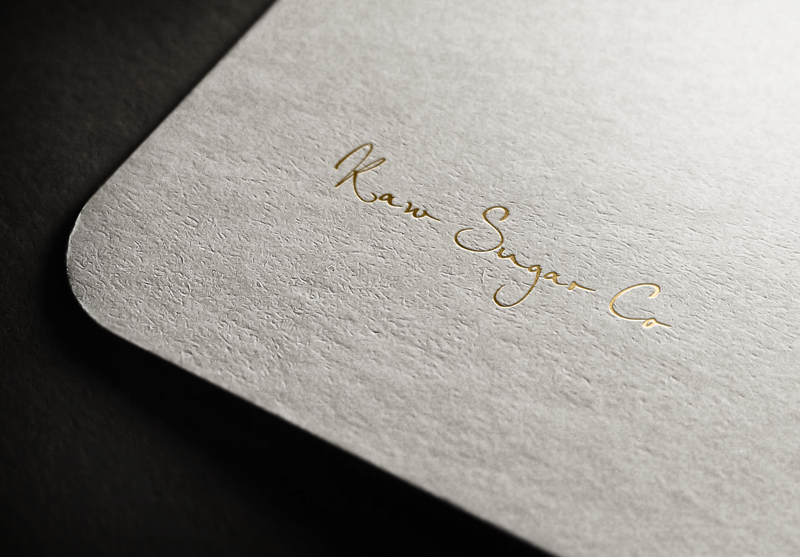 Kaw Sugar Co